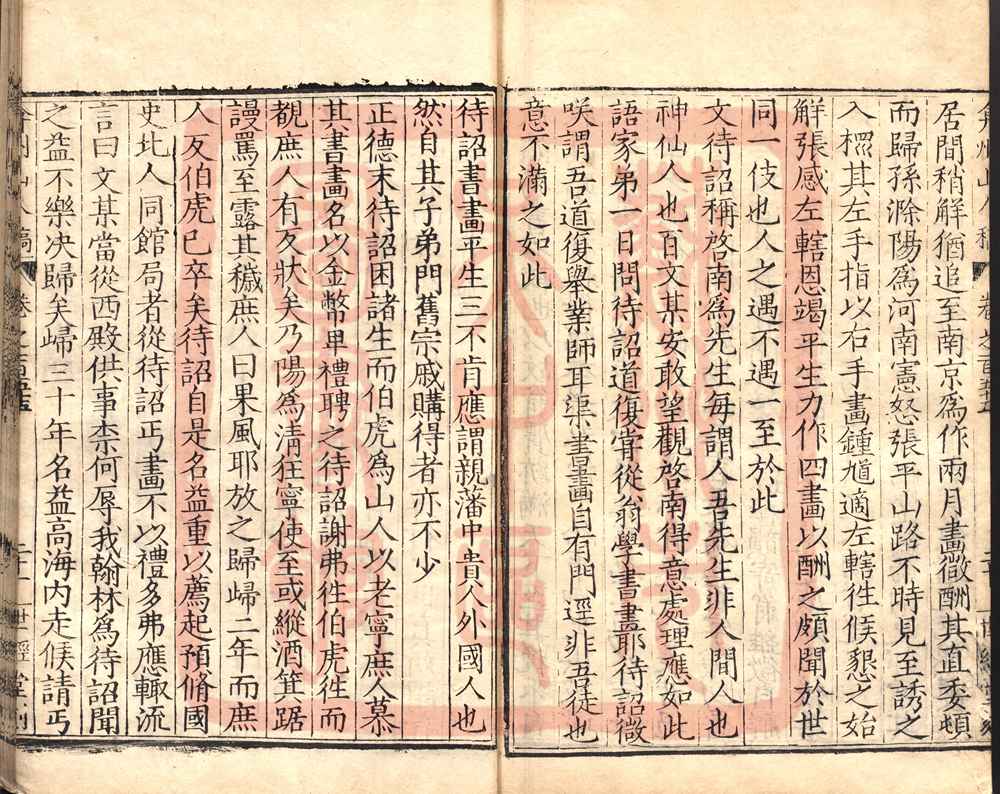 弇州山人稿 卷之一百五十五
居間稍解猶追至南京爲作兩月畫微酬其直委頓
而歸孫滁陽爲河南憲怒張平山路不時見至誘之
入櫃其左手指以右手畫鍾馗適左轄徃候懇之始
觧張感左轄恩竭平生力作四畫以酬之頗聞於世
同一伎也人之遇不遇一至於此
文待詔稱啓南爲先生每謂人吾先生非人間人也
神仙人也百文某安敢望觀啓南得意處理應如此
語家弟一日問待詔道復甞從翁學書畫耶待詔微
咲謂吾道復舉業師耳渠書畫自有門逕非吾徒也
意不滿之如此
待詔書畫平生三不肯應謂親藩中貴人外國人也
然自其子弟門舊宗戚購得者亦不少
正德末待詔困諸生而伯虎爲山人以老寧庶人慕
其書畫名以金幣卑禮聘之待詔謝弗徃伯虎徃而
覩庶人有反狀矣乃陽爲清狂寧使至或縱酒箕踞
謾罵至露其穢庶人曰果風耶放之歸歸二年而庶
人反伯虎已卒矣待詔自是名益重以薦起預脩國
史北人同館局者從待詔丐畫不以禮多弗應輙流
言曰文某當從西殿供事柰何辱我翰林爲待詔聞
之益不樂決歸矣歸三十年名益高海内走候請丐